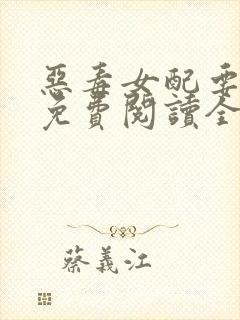 惡毒女配要
免費閱讀全
蔡義江